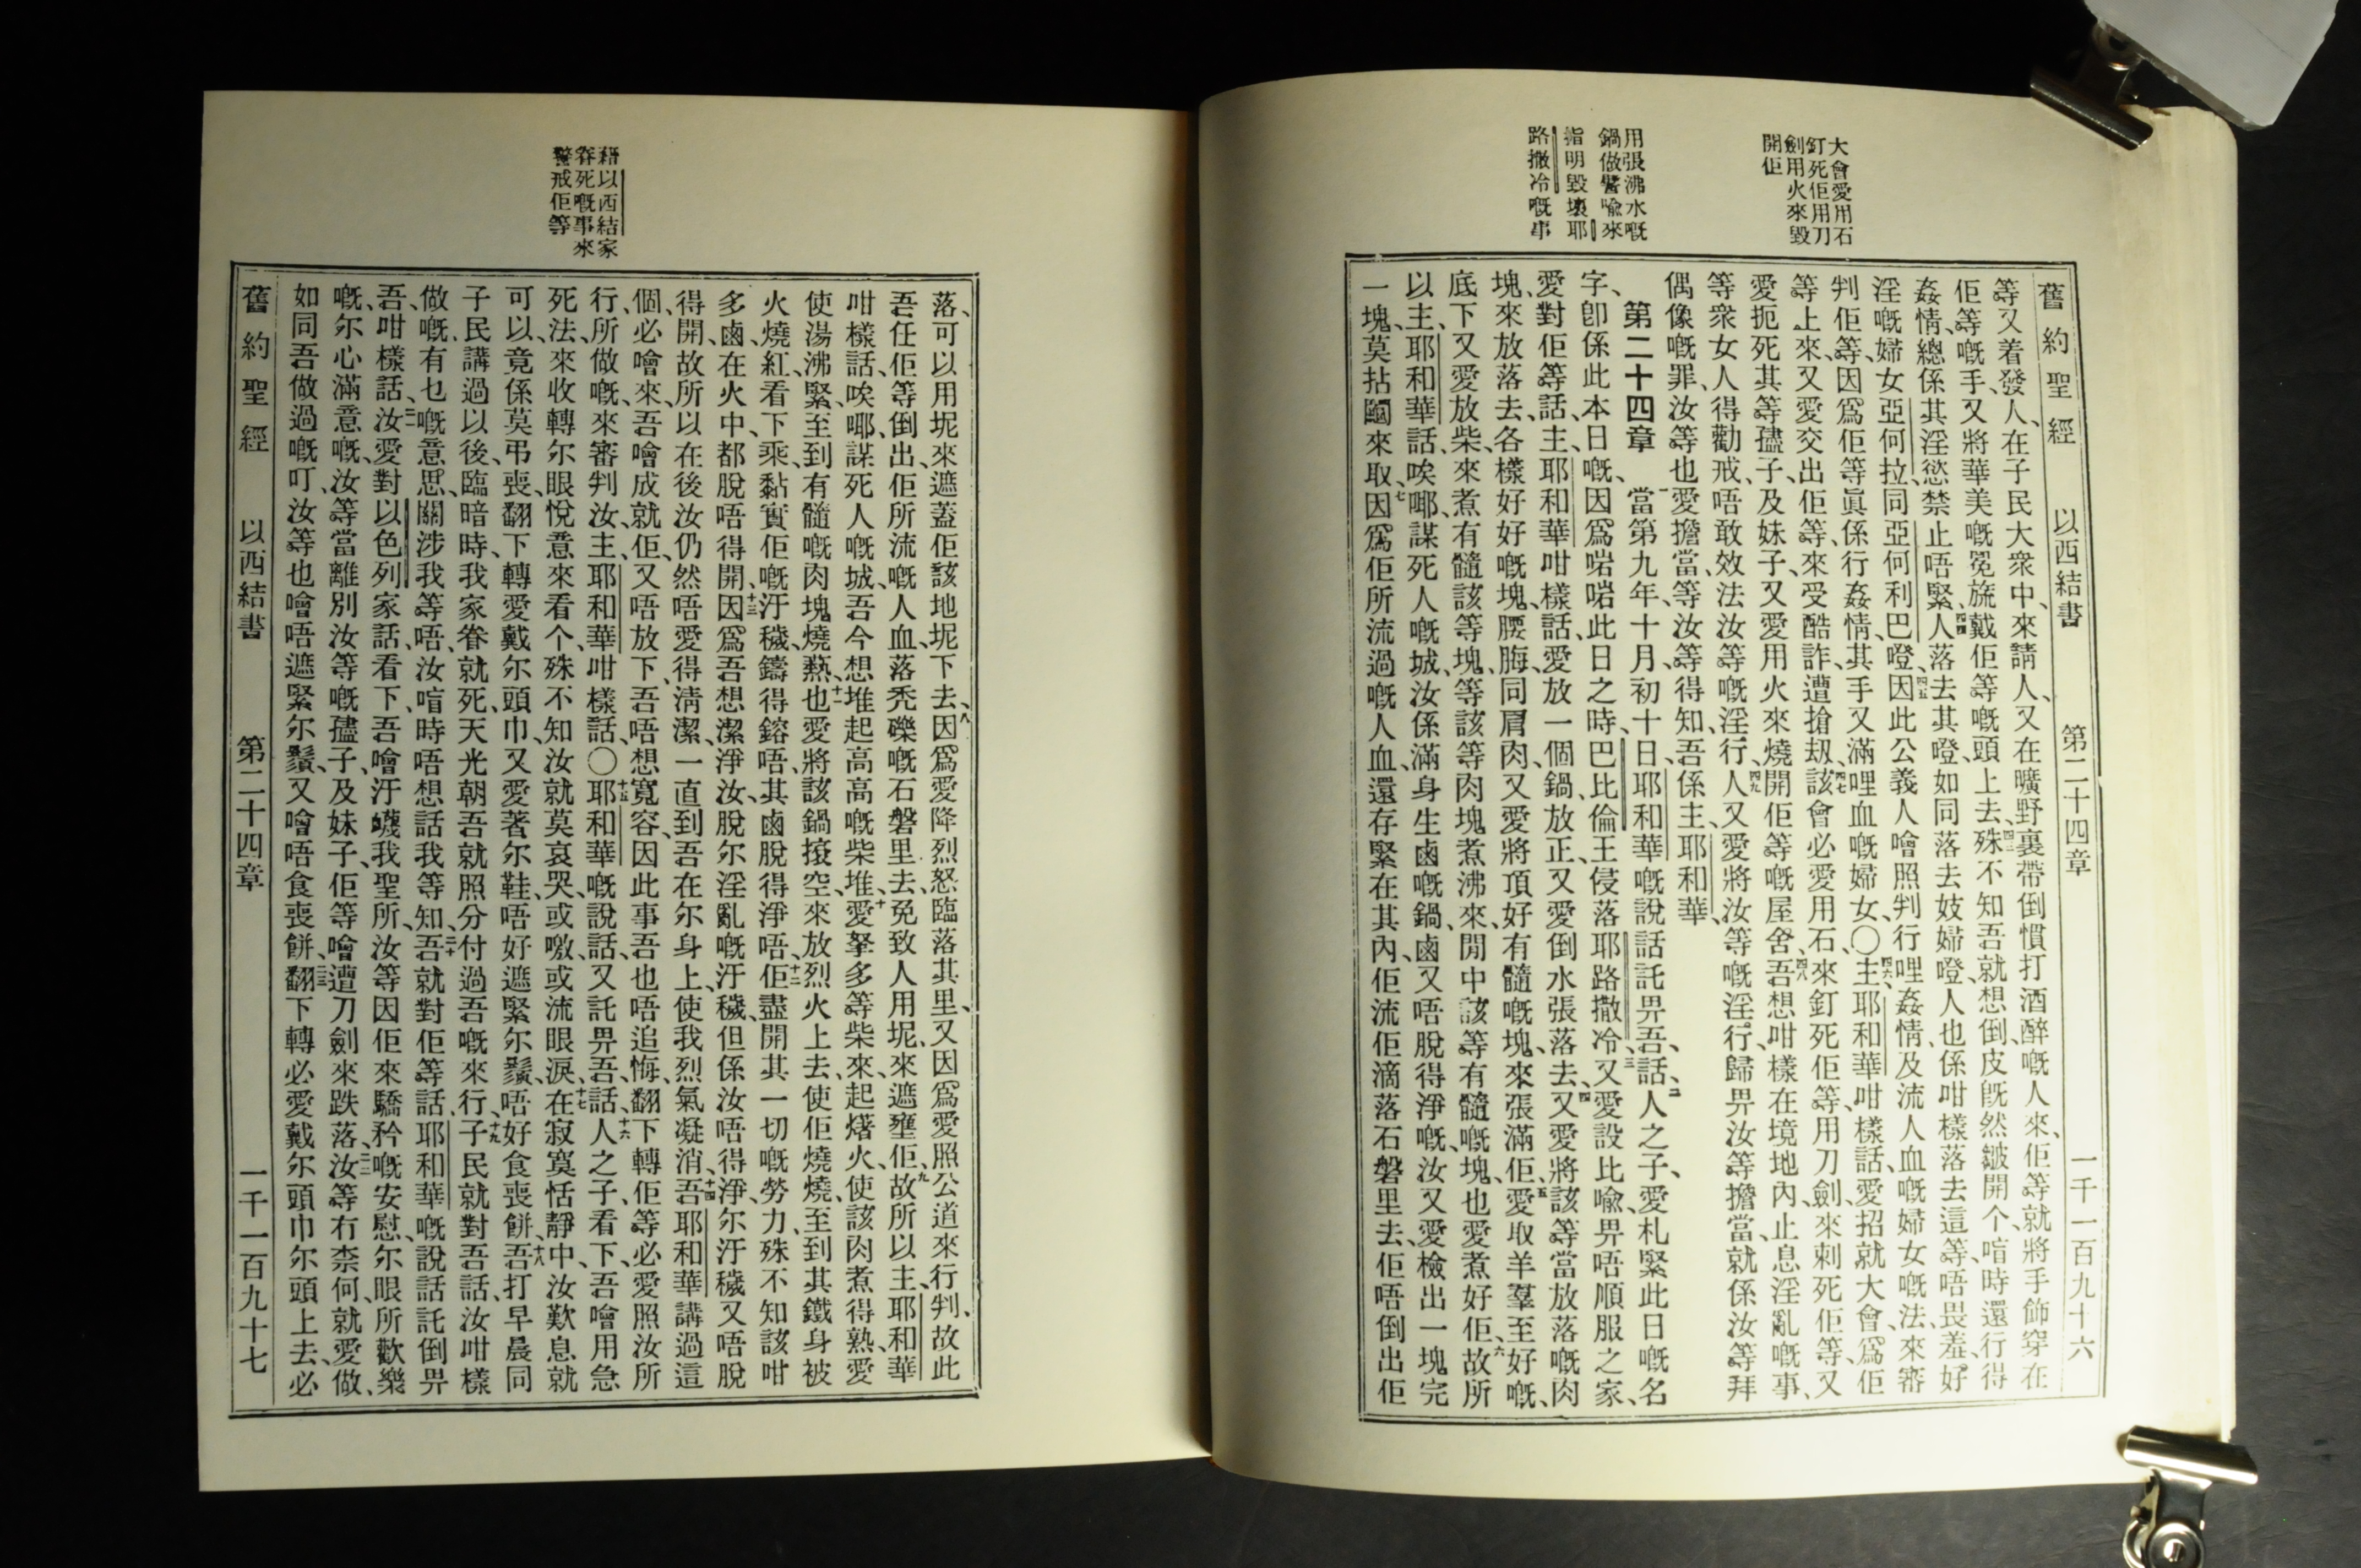 舊約聖經 以西結書 第二十四章 一千一百九十六
大會愛用石
釘死佢用刀
劍用火來毀
開佢
用張沸水嘅
鍋做譬喩來
指明毀壞耶
路撒冷嘅事
等又着發人、在子民大衆中、來請人、又在曠野裏帶倒慣打酒醉嘅人來、佢等就將手飾穿在
佢等嘅手、又將華美嘅冕旒、戴佢等嘅頭上去、四三殊不知吾就想倒、皮旣然皺開个、喑時還行得
姦情、總係其淫慾禁止唔緊、四四人落去其噔、如同落去妓婦噔、人也係咁樣落去這等唔畏羞、好
淫嘅婦女亞何拉、同亞何利巴噔、四五因此公義人噲照判行哩姦情、及流人血嘅婦女嘅法、來審
判佢等、因爲佢等眞係行姦情、其手又滿哩血嘅婦女、〇四六主耶和華咁樣話、愛招就大會、爲佢
等上來、又愛交出佢等、來受酷詐、遭搶刼、四七該會必愛用石、來釘死佢等、用刀劍來刺死佢等、又
愛扼死其等孻子、及妹子、又愛用火來燒開佢等嘅屋舍、四八吾想咁樣在境地內、止息淫亂嘅事、
等衆女人得勸戒、唔敢效法汝等嘅淫行、四九人又愛將汝等嘅淫行、歸畀汝等擔當、就係汝等拜
偶像嘅罪、汝等也愛擔當、等汝等得知、吾係主耶和華、
第二十四章 一當第九年、十月、初十日、耶和華嘅說話託畀吾、話、二人之子、愛札緊此日嘅名
字、卽係此本日嘅、因爲啱啱此日之時、巴比倫王侵落耶路撒冷、三又愛設比喩、畀唔順服之家、
愛對佢等話、主耶和華咁樣話、愛放一個鍋、放正、又愛倒水張落去、四又愛將該等當放落嘅肉
塊、來放落去、各樣好好嘅塊、腰脢、同肩肉、又愛將頂好有髓嘅塊、來張滿佢、五愛取羊羣至好嘅、
底下又愛放柴、來煮有髓該等塊、等該等肉塊煮沸來、閒中該等有髓嘅塊、也愛煮好佢、六故所
以主耶和華話、唉㖿、謀死人嘅城、汝係滿身生鹵嘅鍋、鹵又唔脫得淨嘅、汝又愛檢出一塊完
一塊、莫拈鬮來取、七因爲佢所流過嘅人血、還存緊在其內、佢流佢滴落石磐里去、佢唔倒出佢
藉以西結家
眷死嘅事來
警戒佢等
落、可以用坭來遮蓋佢該地坭下去、八因爲愛降烈怒臨落其里、又因爲愛照公道來行判、故此
吾任佢等倒出佢所流嘅人血、落禿礫嘅石磐里去、免致人用坭、來遮壅佢、九故所以主耶和華
咁樣話、唉㖿、謀死人嘅城、吾今想堆起高高嘅柴堆、十愛拏多等柴來、起㷮火、使該肉煮得熟、愛
使湯沸緊、至到有髓嘅肉塊、燒爇、十一也愛將該鍋㨘空、來放烈火上去、使佢燒燒、至到其鐵身被
火燒紅、看下乘黏實佢嘅汙穢、鑄得鎔唔、其鹵脫得淨唔、十二佢盡開其一切嘅勞力、殊不知該咁
多鹵、在火中、都脫唔得開、十三因爲吾想潔淨汝、脫尔淫亂嘅汙穢、但係汝唔得淨、尔汙穢又唔脫
得開、故所以在後汝仍然唔愛得清潔、一直到吾在尔身上、使我烈氣凝消、十四吾耶和華講過這
個、必噲來、吾噲成就佢、又唔放下、吾唔想寬容、因此事吾也唔追悔、翻下轉佢等必愛照汝所
行、所做嘅、來審判汝、主耶和華咁樣話、〇十五耶和華嘅說話、又託畀吾、話、十六人之子、看下、吾噲用急
死法、來收轉尔眼悅意來看个、殊不知汝就莫哀哭、或噭、或流眼淚、十七在寂寞恬靜中、汝歎息就
可以、竟係莫弔喪、翻下轉愛戴尔頭巾、又愛著尔鞋、唔好遮緊尔鬚、唔好食喪餅、十八吾打早晨同
子民講過以後、臨暗時、我家眷就死、天光朝吾就照分付過吾嘅來行、十九子民就對吾話、汝咁樣
做嘅、有也嘅意思、關涉我等唔、汝喑時唔想話我等知、二十吾就對佢等話、耶和華嘅說話託倒畀
吾、咁樣話、二一汝愛對以色列家話、看下、吾噲汙衊我聖所、汝等因佢來驕矜嘅安慰、尔眼所歡樂
嘅、尔心滿意嘅、汝等當離別汝等嘅孻子、及妹子、佢等噲遭刀劍來跌落、二二汝等冇柰何、就愛做、
如同吾做過嘅叮、汝等也噲唔遮緊尔鬚、又噲唔食喪餅、二三翻下轉必愛戴尔頭巾、尔頭上去、必
舊約聖經 以西結書 第二十四章 一千一百九十七